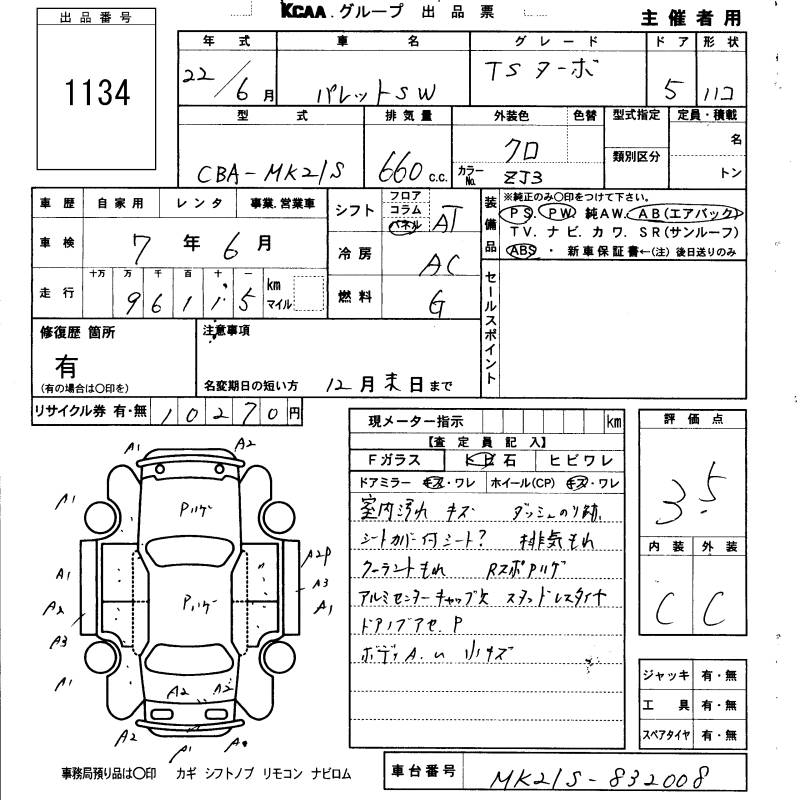 KCAA グループ 出品票
主催者用
出品番号
1134
年式 車名 グレード ドア 形状
22/6月 パレットSW TSターボ 5 ハコ
型式 排気量 外装色 色替 型式指定 定員・積載
CBA-MK21S 660c.c. クロ 名
カラーNo. ZJ3 類別区分 トン
車歴 自家用 レンタ 事業.営業車
車検 7年6月
走行 十万 万 千 百 十 一 km マイル
9 6 1 1 5
シフト フロア コラム パネル AT
冷房 AC
燃料 G
装備品 ※純正のみ〇印をつけて下さい。
PS. PW. 純AW. AB(エアバック)
TV. ナビ. カワ. SR(サンルーフ)
ABS ・ 新車保証書←(注)後日送りのみ
セールスポイント
修復歴 箇所
有
(有の場合は〇印を)
注意事項
名変期日の短い方 12月末日まで
リサイクル券 有・無 10270円
現メーター指示 km
【査定員記入】
Fガラス トビ石 ヒビワレ
ドアミラー キズ・ワレ ホイール(CP) キズ・ワレ
室内汚れ キズ ダッシュのり跡.
シートカバー付シート? 排気もれ
クーラントもれ RスポPハゲ
アルミセンターキャップ欠 スタッドレスタイヤ
ドアノブアセ.P
ボディA.u 小キズ
評価点
3.5
内装 外装
C C
ジャッキ 有・無
工具 有・無
スペアタイヤ 有・無
A1 A2
A1 Pハゲ
A1 A2P
A3
A2 Pハゲ A1
A3
A1 A2 A2
A2 A1
事務局預り品は〇印 カギ シフトノブ リモコン ナビロム
車台番号 MK21S-832008